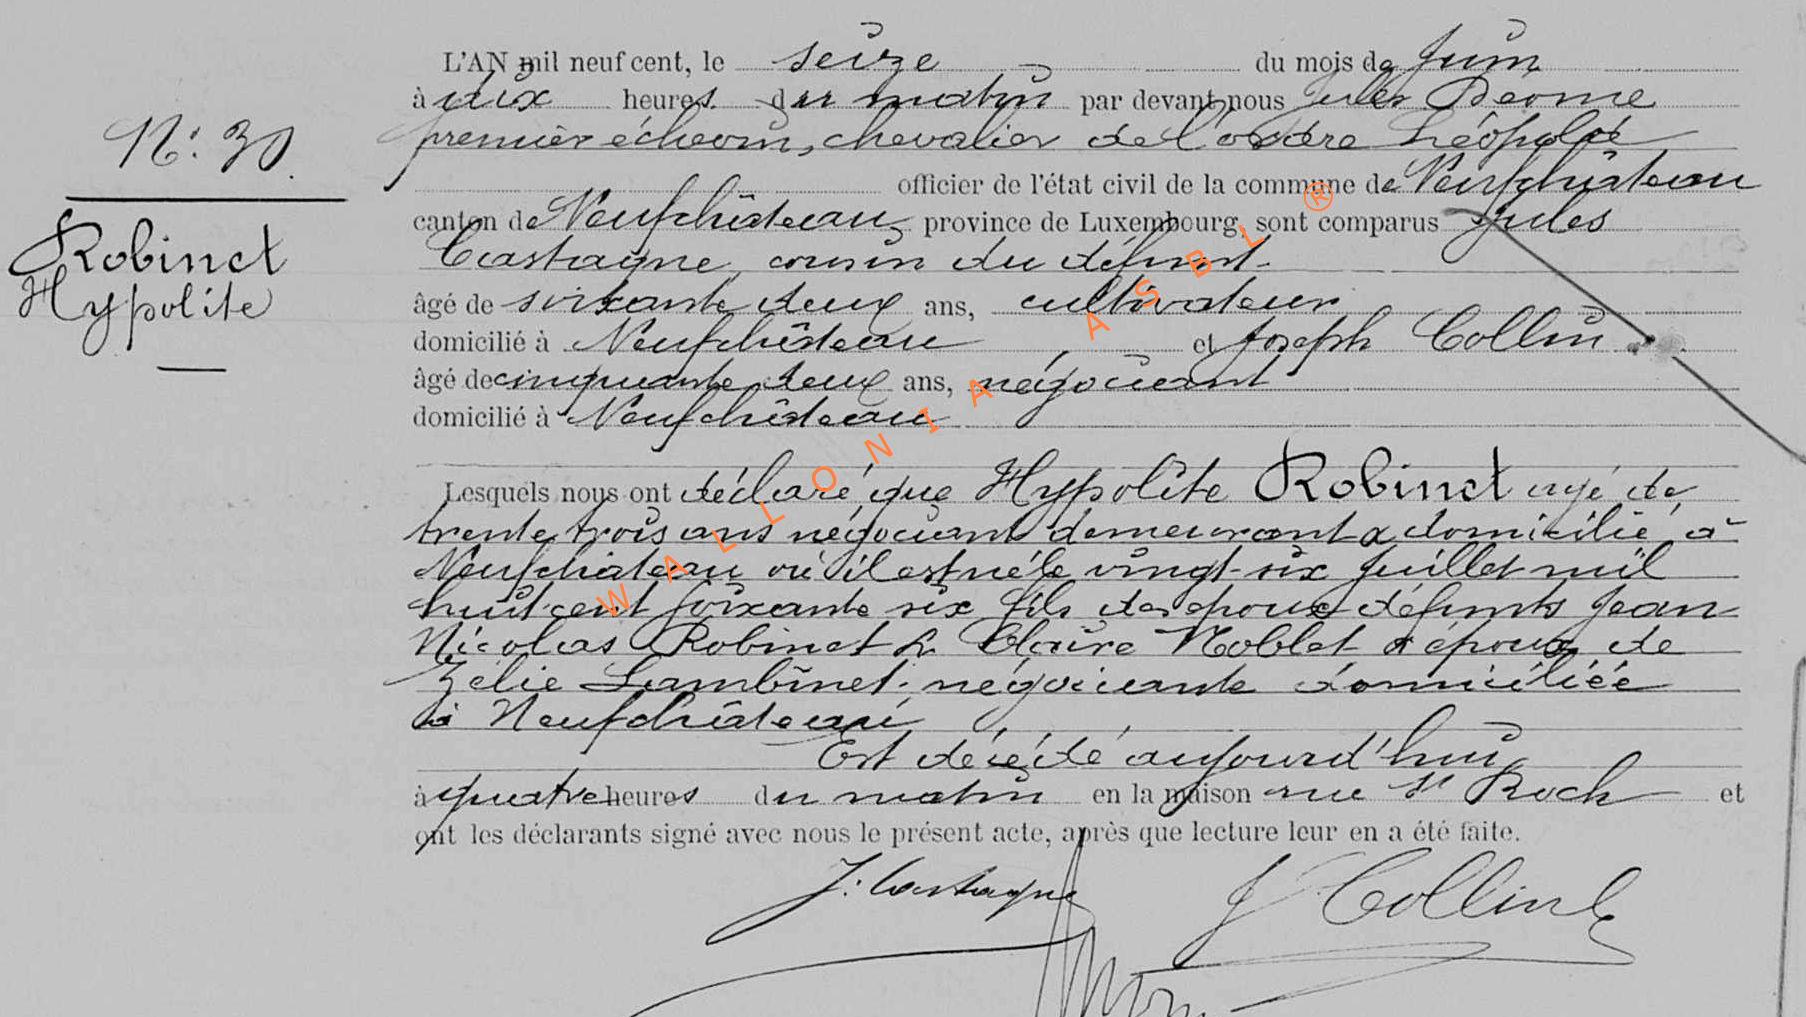 N: 30.
Robinet
Hypolite
L'AN mil neuf cent, le seize du mois de Juin
à dix heures du matin par devant nous Jules
premier échevin, chevalier de l'ordre Léopold
officier de l'état civil de la commune de Neufchâteau
canton de Neufchâteau, province de Luxembourg, sont comparus Jules
Castagne, cousin du défunt.
âgé de soixante deux ans, cultivateur
domicilié à Neufchâteau et Joseph Collin
âgé de cinquante deux ans, négociant
domicilié à Neufchâteau
Lesquels nous ont déclaré que Hypolite Robinet agé de
trente trois ans négociant demeurant & domicilié à
Neufchateau où il est né le vingt-six Juillet mil
huit cent soixante six fils des époux défunts Jean
Nicolas Robinet & Claire Noblet & époux de
Zélie Lambinet. négociante domiciliée
à Neufchâteau
Est décédé aujourd'hui
à quatre heures du matin en la maison rue St Roch et
ont les déclarants signé avec nous le présent acte, après que lecture leur en a été faite.
J. Castagne J. Collin
WALLONIA ASBL ®